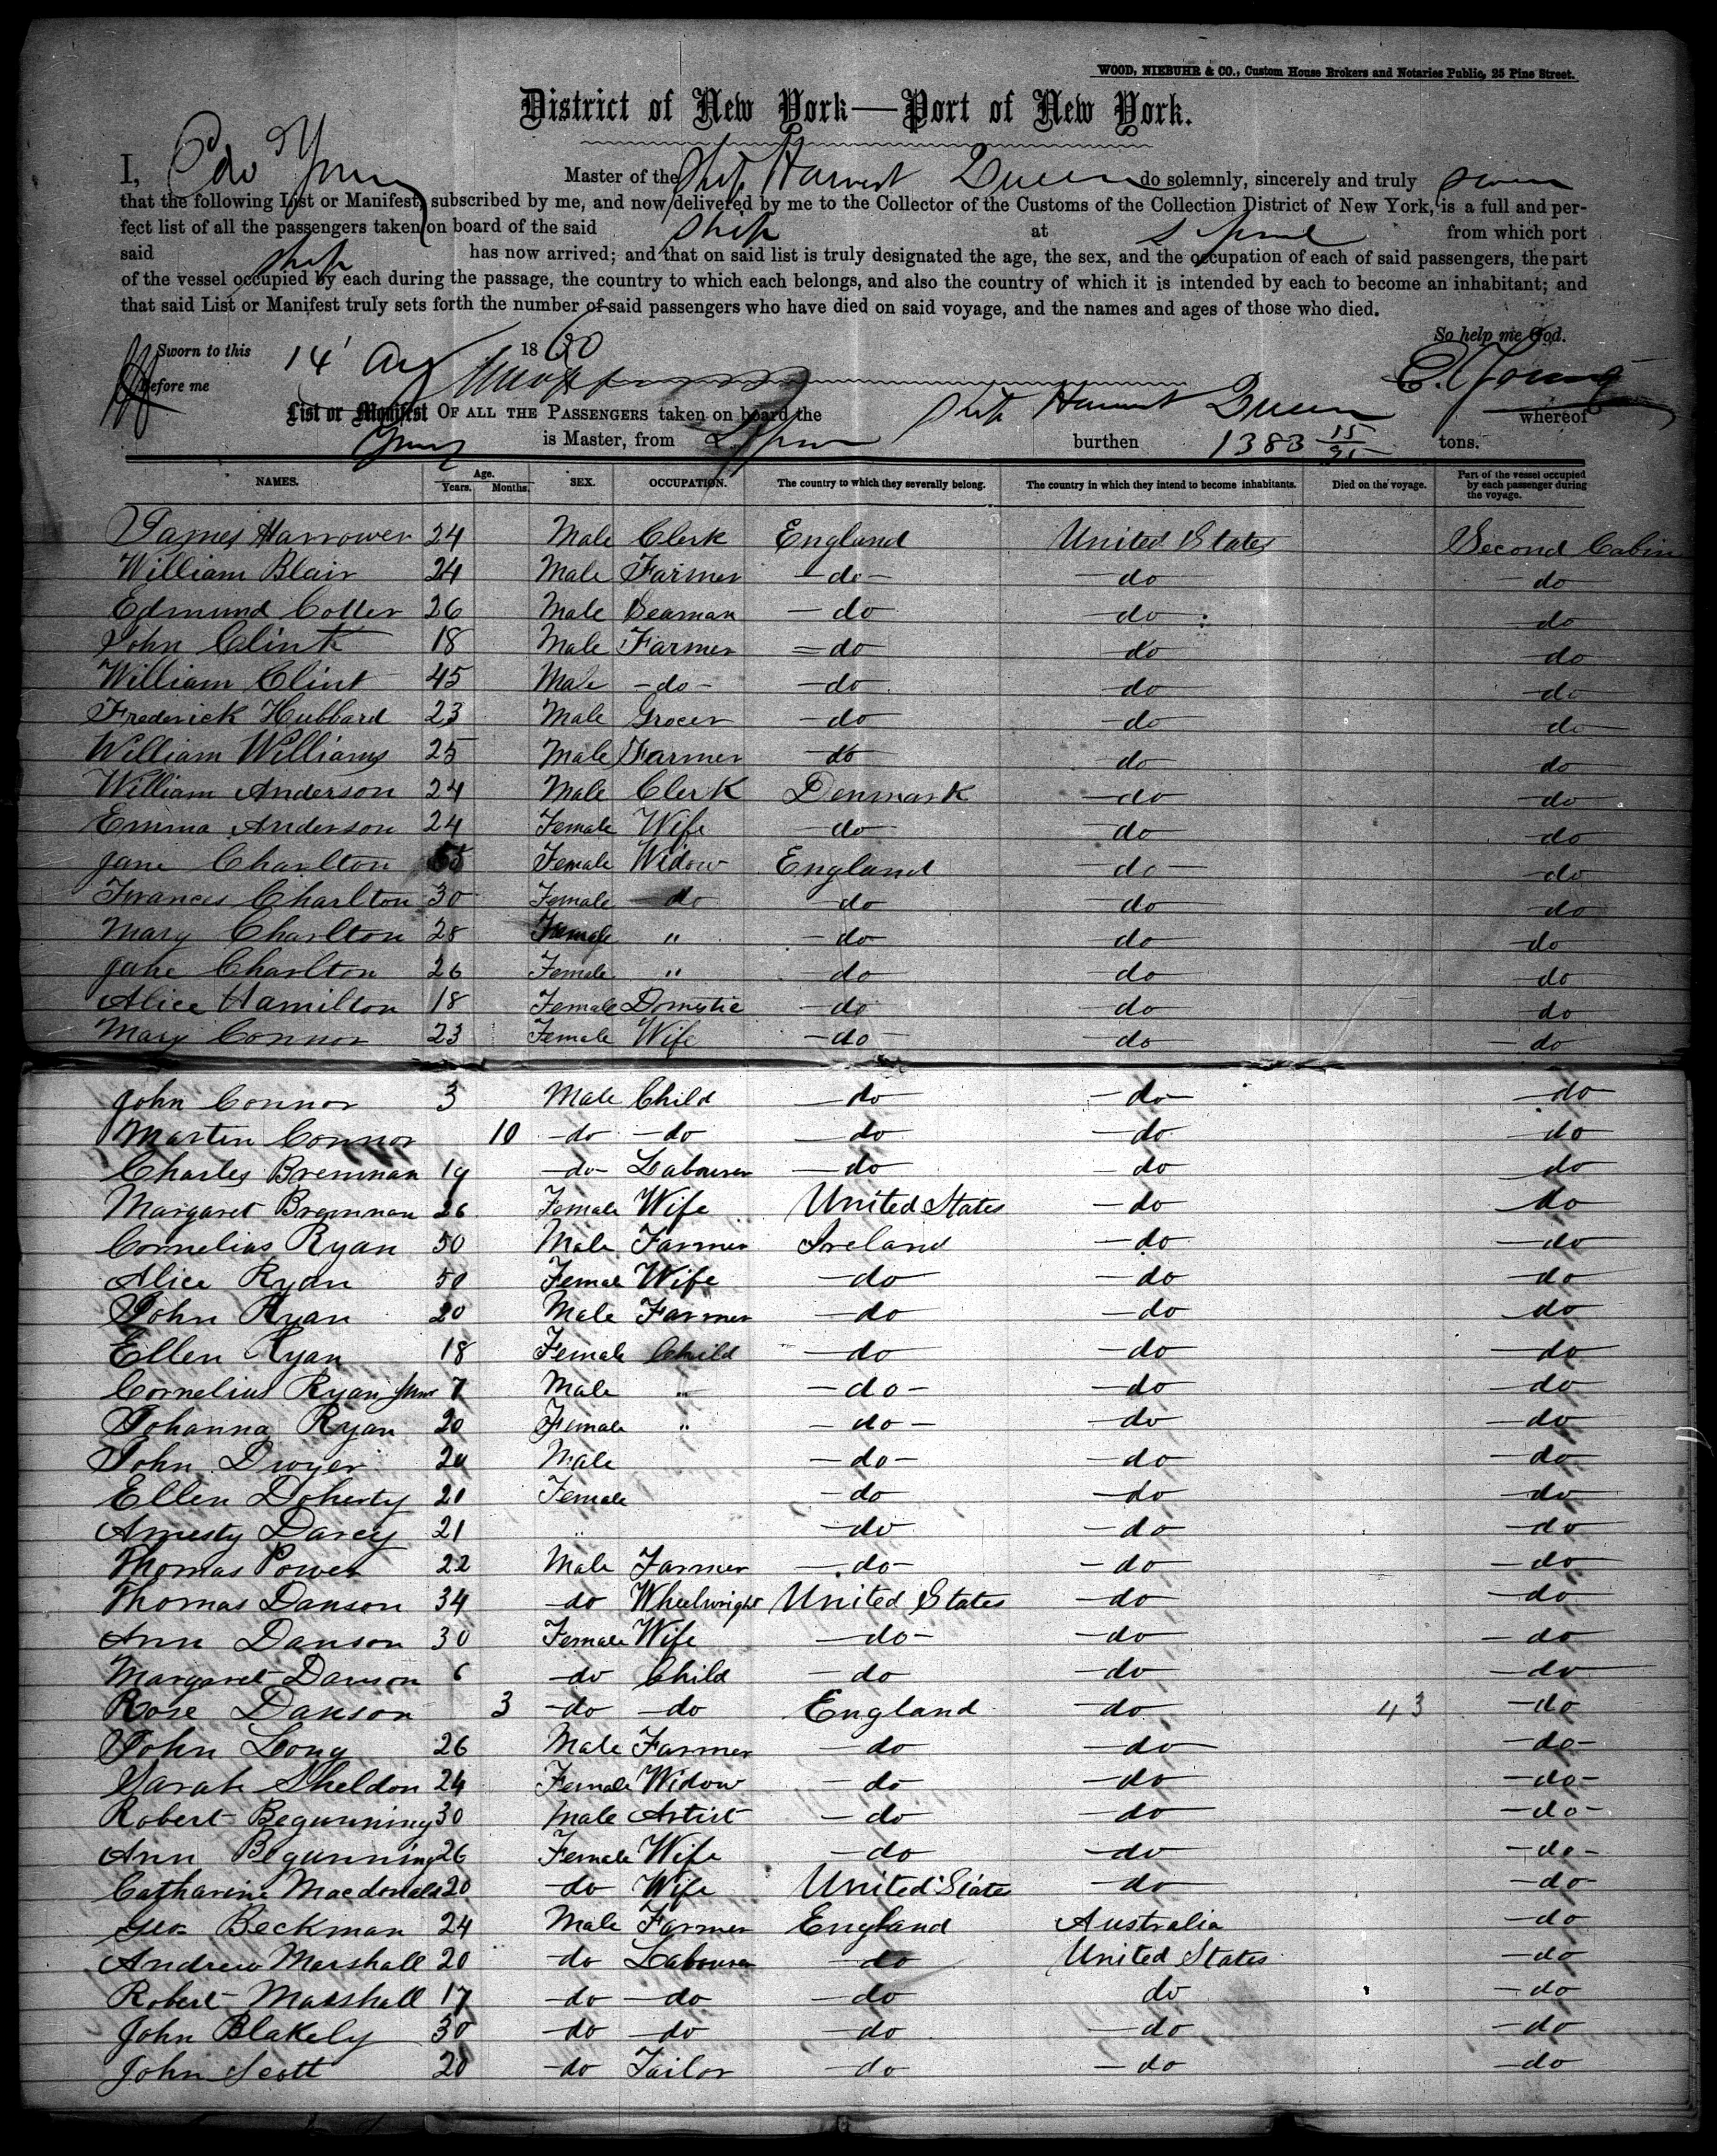 WOOD, NIEBUHR & CO., Custom House Brokers and Notaries Public, 25 Pine Street.
District of New York—Port of New York.
I, Edw Young Master of the Ship Harvest Queen do solemnly, sincerely and truly swear
that the following List or Manifest, subscribed by me, and now delivered by me to the Collector of the Customs of the Collection District of New York, is a full and per-
fect list of all the passengers taken on board of the said ship at Lpool from which port
said ship has now arrived; and that on said list is truly designated the age, the sex, and the occupation of each of said passengers, the part
of the vessel occupied by each during the passage, the country to which each belongs, and also the country of which it is intended by each to become an inhabitant; and
that said List or Manifest truly sets forth the number of said passengers who have died on said voyage, and the names and ages of those who died.
So help me God.
Sworn to this 14 Aug 1860
Before me E. Young
List or Manifest OF ALL THE PASSENGERS taken on board the Ship Harvest Queen whereof
Young is Master, from Lpool burthen 1383 15/95 tons.
NAMES. Age. Years. Months. SEX. OCCUPATION. The country to which they severally belong. The country in which they intend to become inhabitants. Died on the voyage. Part of the vessel occupied by each passenger during the voyage.
James Harrower 24 Male Clerk England United States Second Cabin
William Blair 24 Male Farmer do do do
Edmund Cotter 26 Male Seaman do do do
John Clint 18 Male Farmer do do do
William Clint 45 Male do do do do
Frederick Hubbard 23 Male Grocer do do do
William Williams 25 Male Farmer do do do
William Anderson 24 Male Clerk Denmark do do
Emma Anderson 24 Female Wife do do do
Jane Charlton 55 Female Widow England do do
Frances Charlton 30 Female do do do do
Mary Charlton 28 Female " do do do
Jane Charlton 26 Female " do do do
Alice Hamilton 18 Female Domestic do do do
Mary Connor 23 Female Wife do do do
John Connor 3 Male Child do do do
Martin Connor 10 do do do do do
Charles Brennan 19 do Labourer do do do
Margaret Brennan 26 Female Wife United States do do
Cornelius Ryan 50 Male Farmer Ireland do do
Alice Ryan 50 Female Wife do do do
John Ryan 20 Male Farmer do do do
Ellen Ryan 18 Female Child do do do
Cornelius Ryan Junr 7 Male " do do do
Johanna Ryan 20 Female " do do do
John Dwyer 20 Male do do do
Ellen Doherty 20 Female do do do
Amesty Darcy 21 " do do do
Thomas Power 22 Male Farmer do do do
Thomas Danson 34 do Wheelwright United States do do
Ann Danson 30 Female Wife do do do
Margaret Danson 6 do Child do do do
Rose Danson 3 do do England do 43 do
John Long 26 Male Farmer do do do
Sarah Sheldon 24 Female Widow do do do
Robert Begunning 30 Male Artist do do do
Ann Begunning 26 Female Wife do do do
Catharine Macdonald 20 do Wife United States do do
Geo Beckman 24 Male Farmer England Australia do
Andrew Marshall 20 do Labourer do United States do
Robert Marshall 17 do do do do do
John Blakely 30 do do do do do
John Scott 20 do Tailor do do do